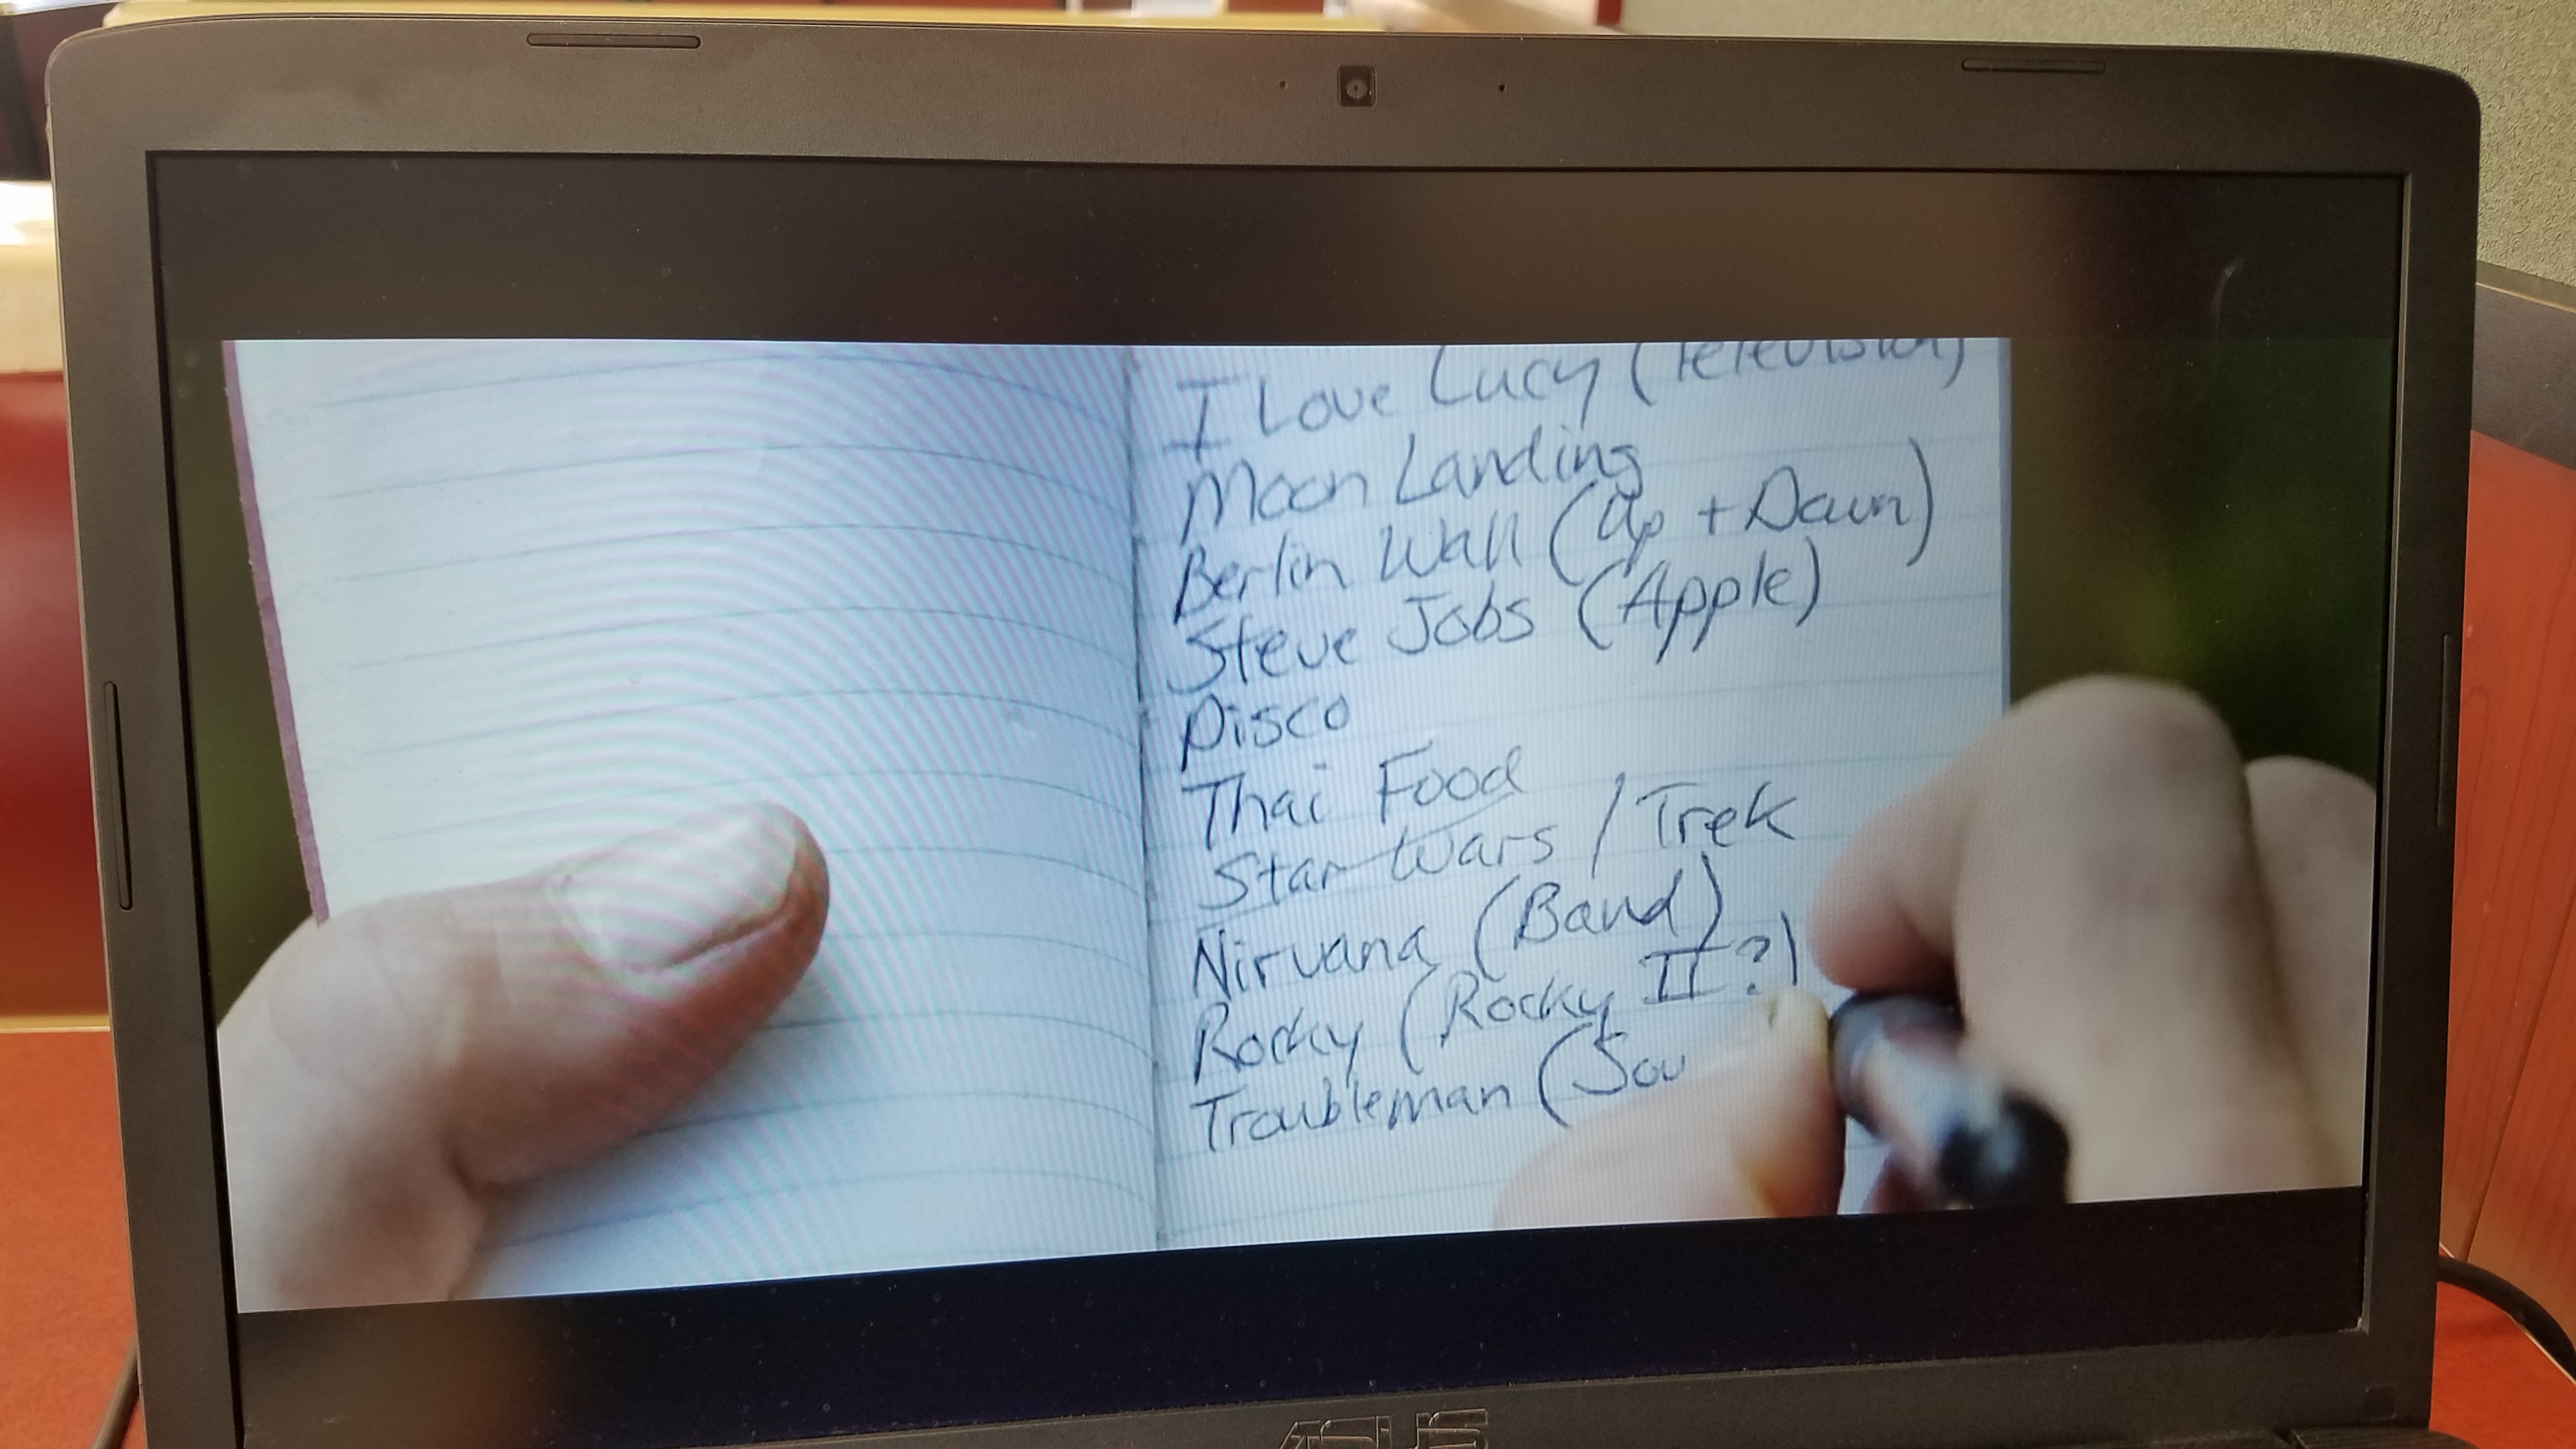 I Love Lucy (Television)
Moon Landing
Berlin Wall (Up + Down)
Steve Jobs (Apple)
Disco
Thai Food
Star Wars / Trek
Nirvana (Band)
Rocky (Rocky II?)
Troubleman (Sou
ASUS